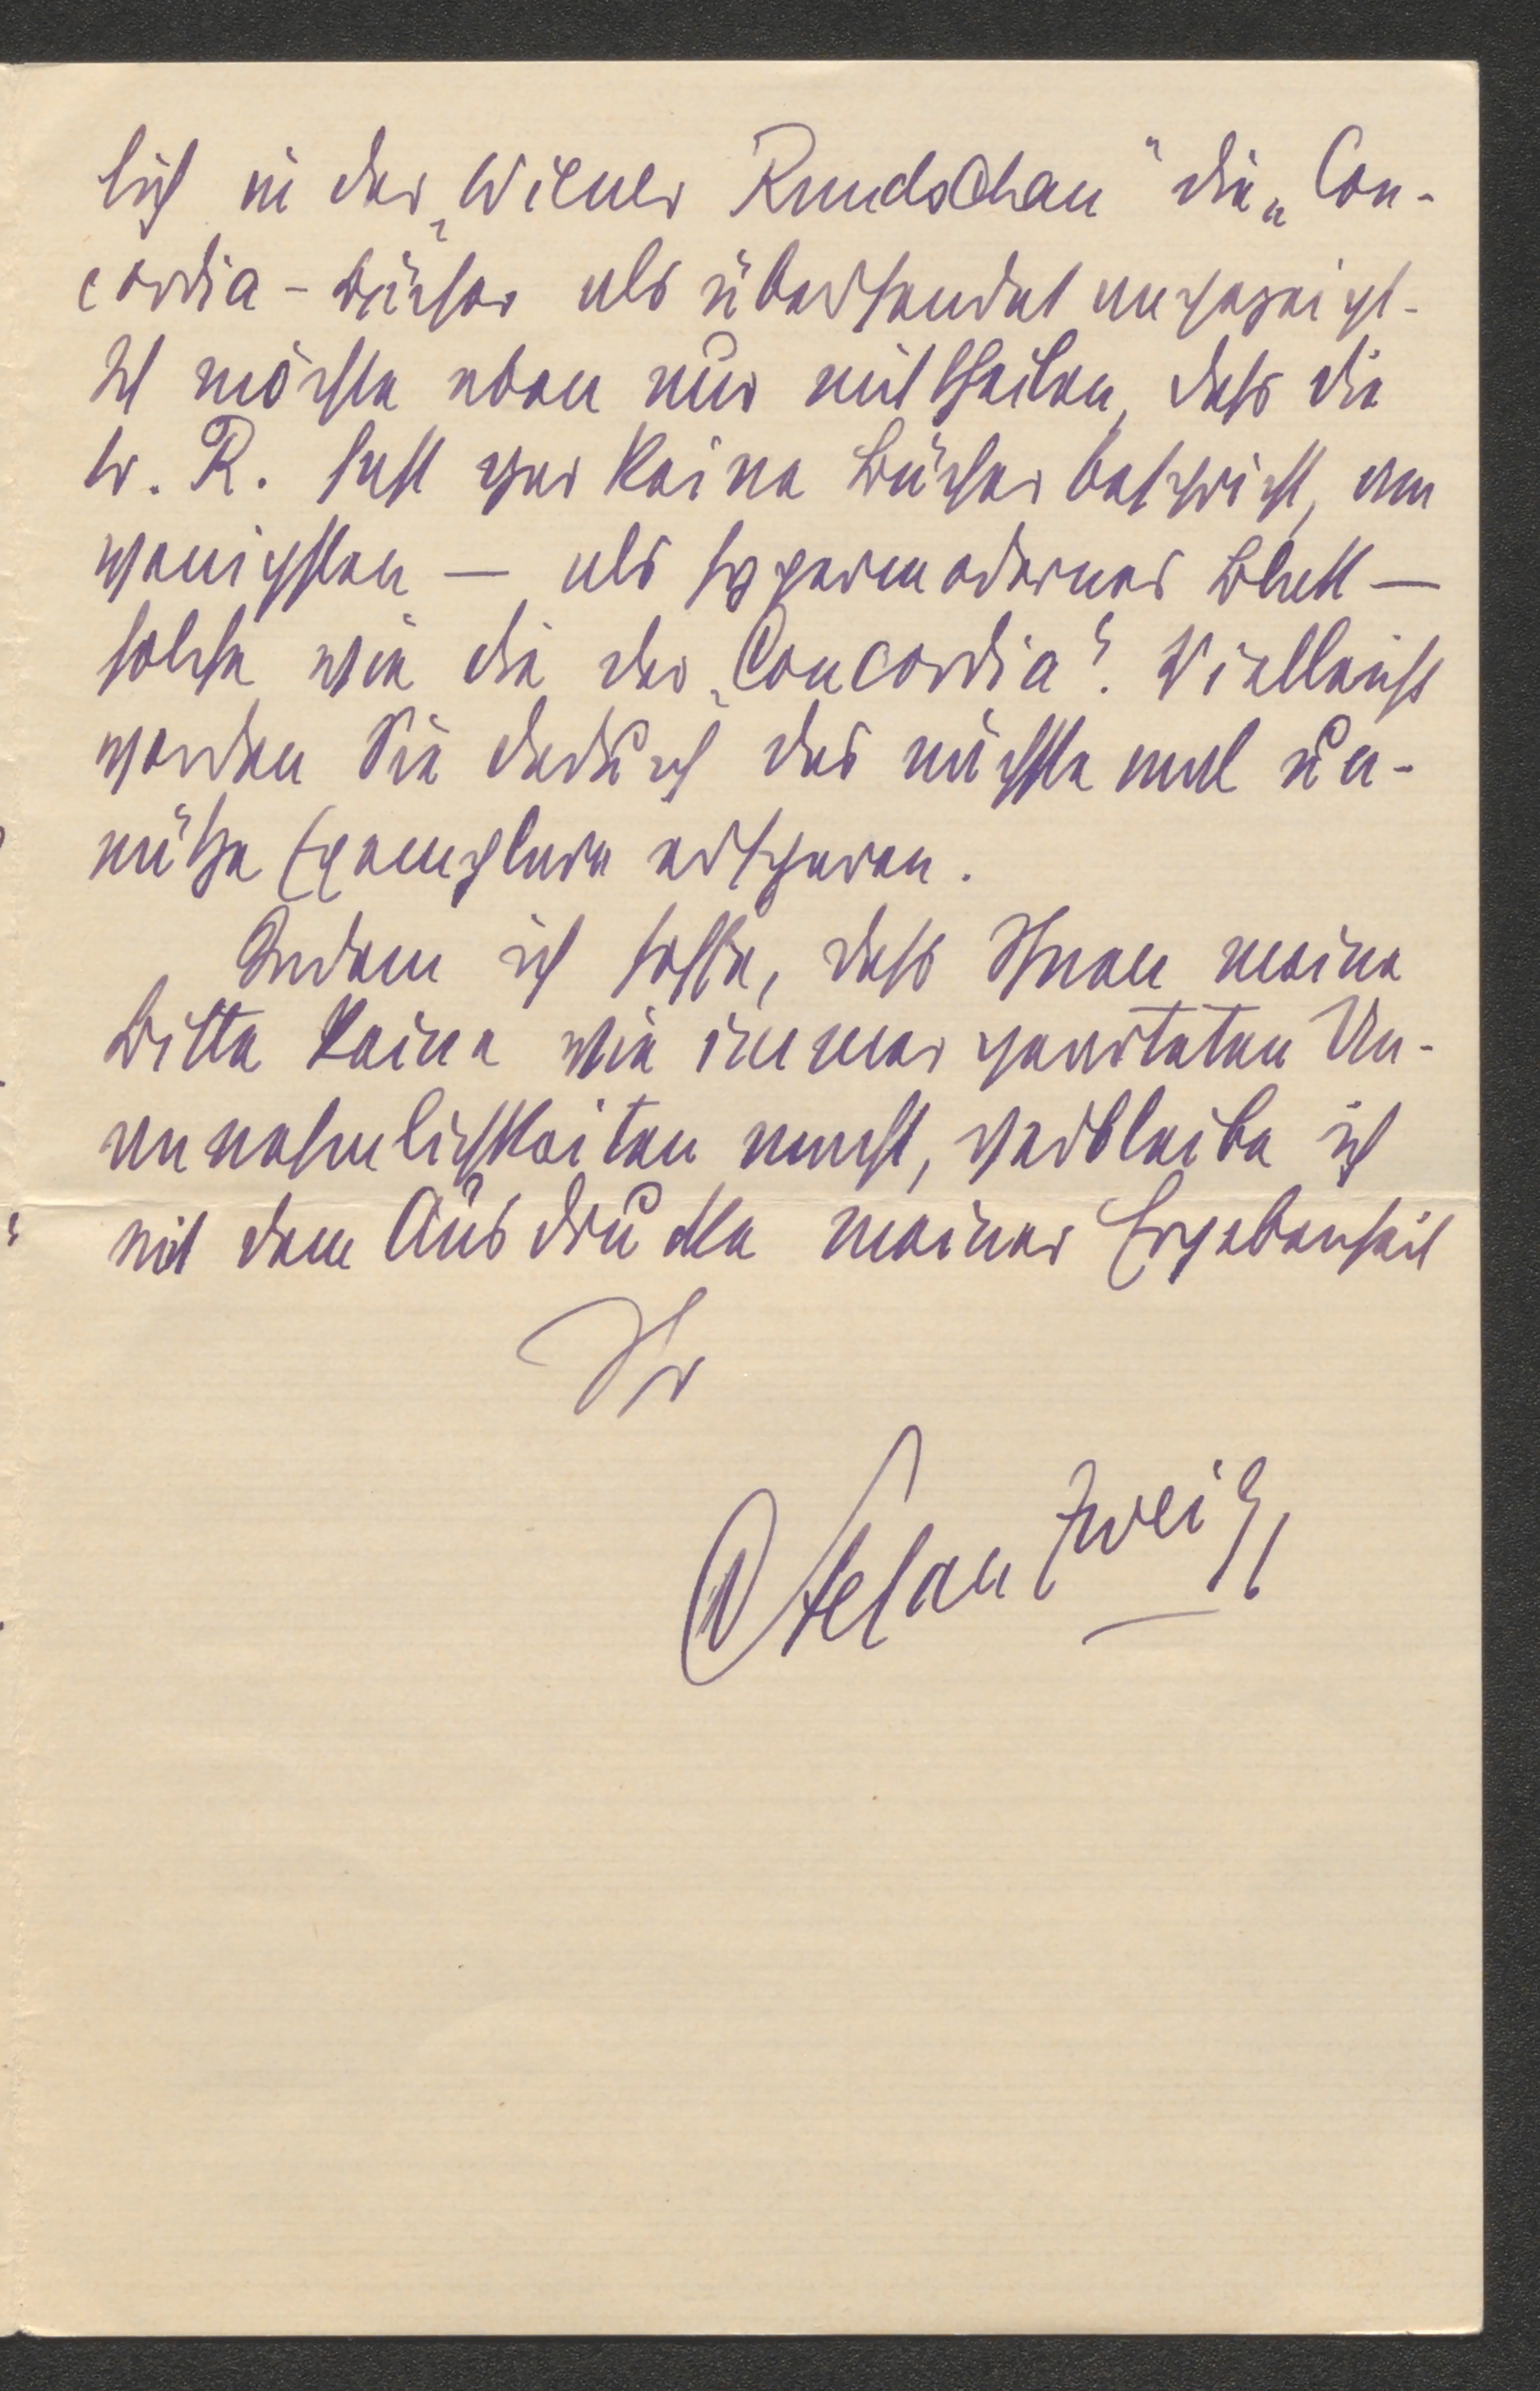 lich in der „Wiener Rundschau" die „Con-
cordia-Bücher als übersendet angezeigt.
Ich möchte eben nur mittheilen, dass die
W. R. fast gar keine Bücher bespricht, am
wenigsten — als hypermodernes Blatt —
solche wie die der „Concordia". Vielleicht
werden Sie dadurch das nächste mal un-
nütze Exemplare ersparen.
Indem ich hoffe, dass Ihnen meine
Bitte keine wie immer gearteten Un-
annehmlichkeiten macht, verbleibe ich
mit dem Ausdrucke meiner Ergebenheit
Ihr
Stefan Zweig